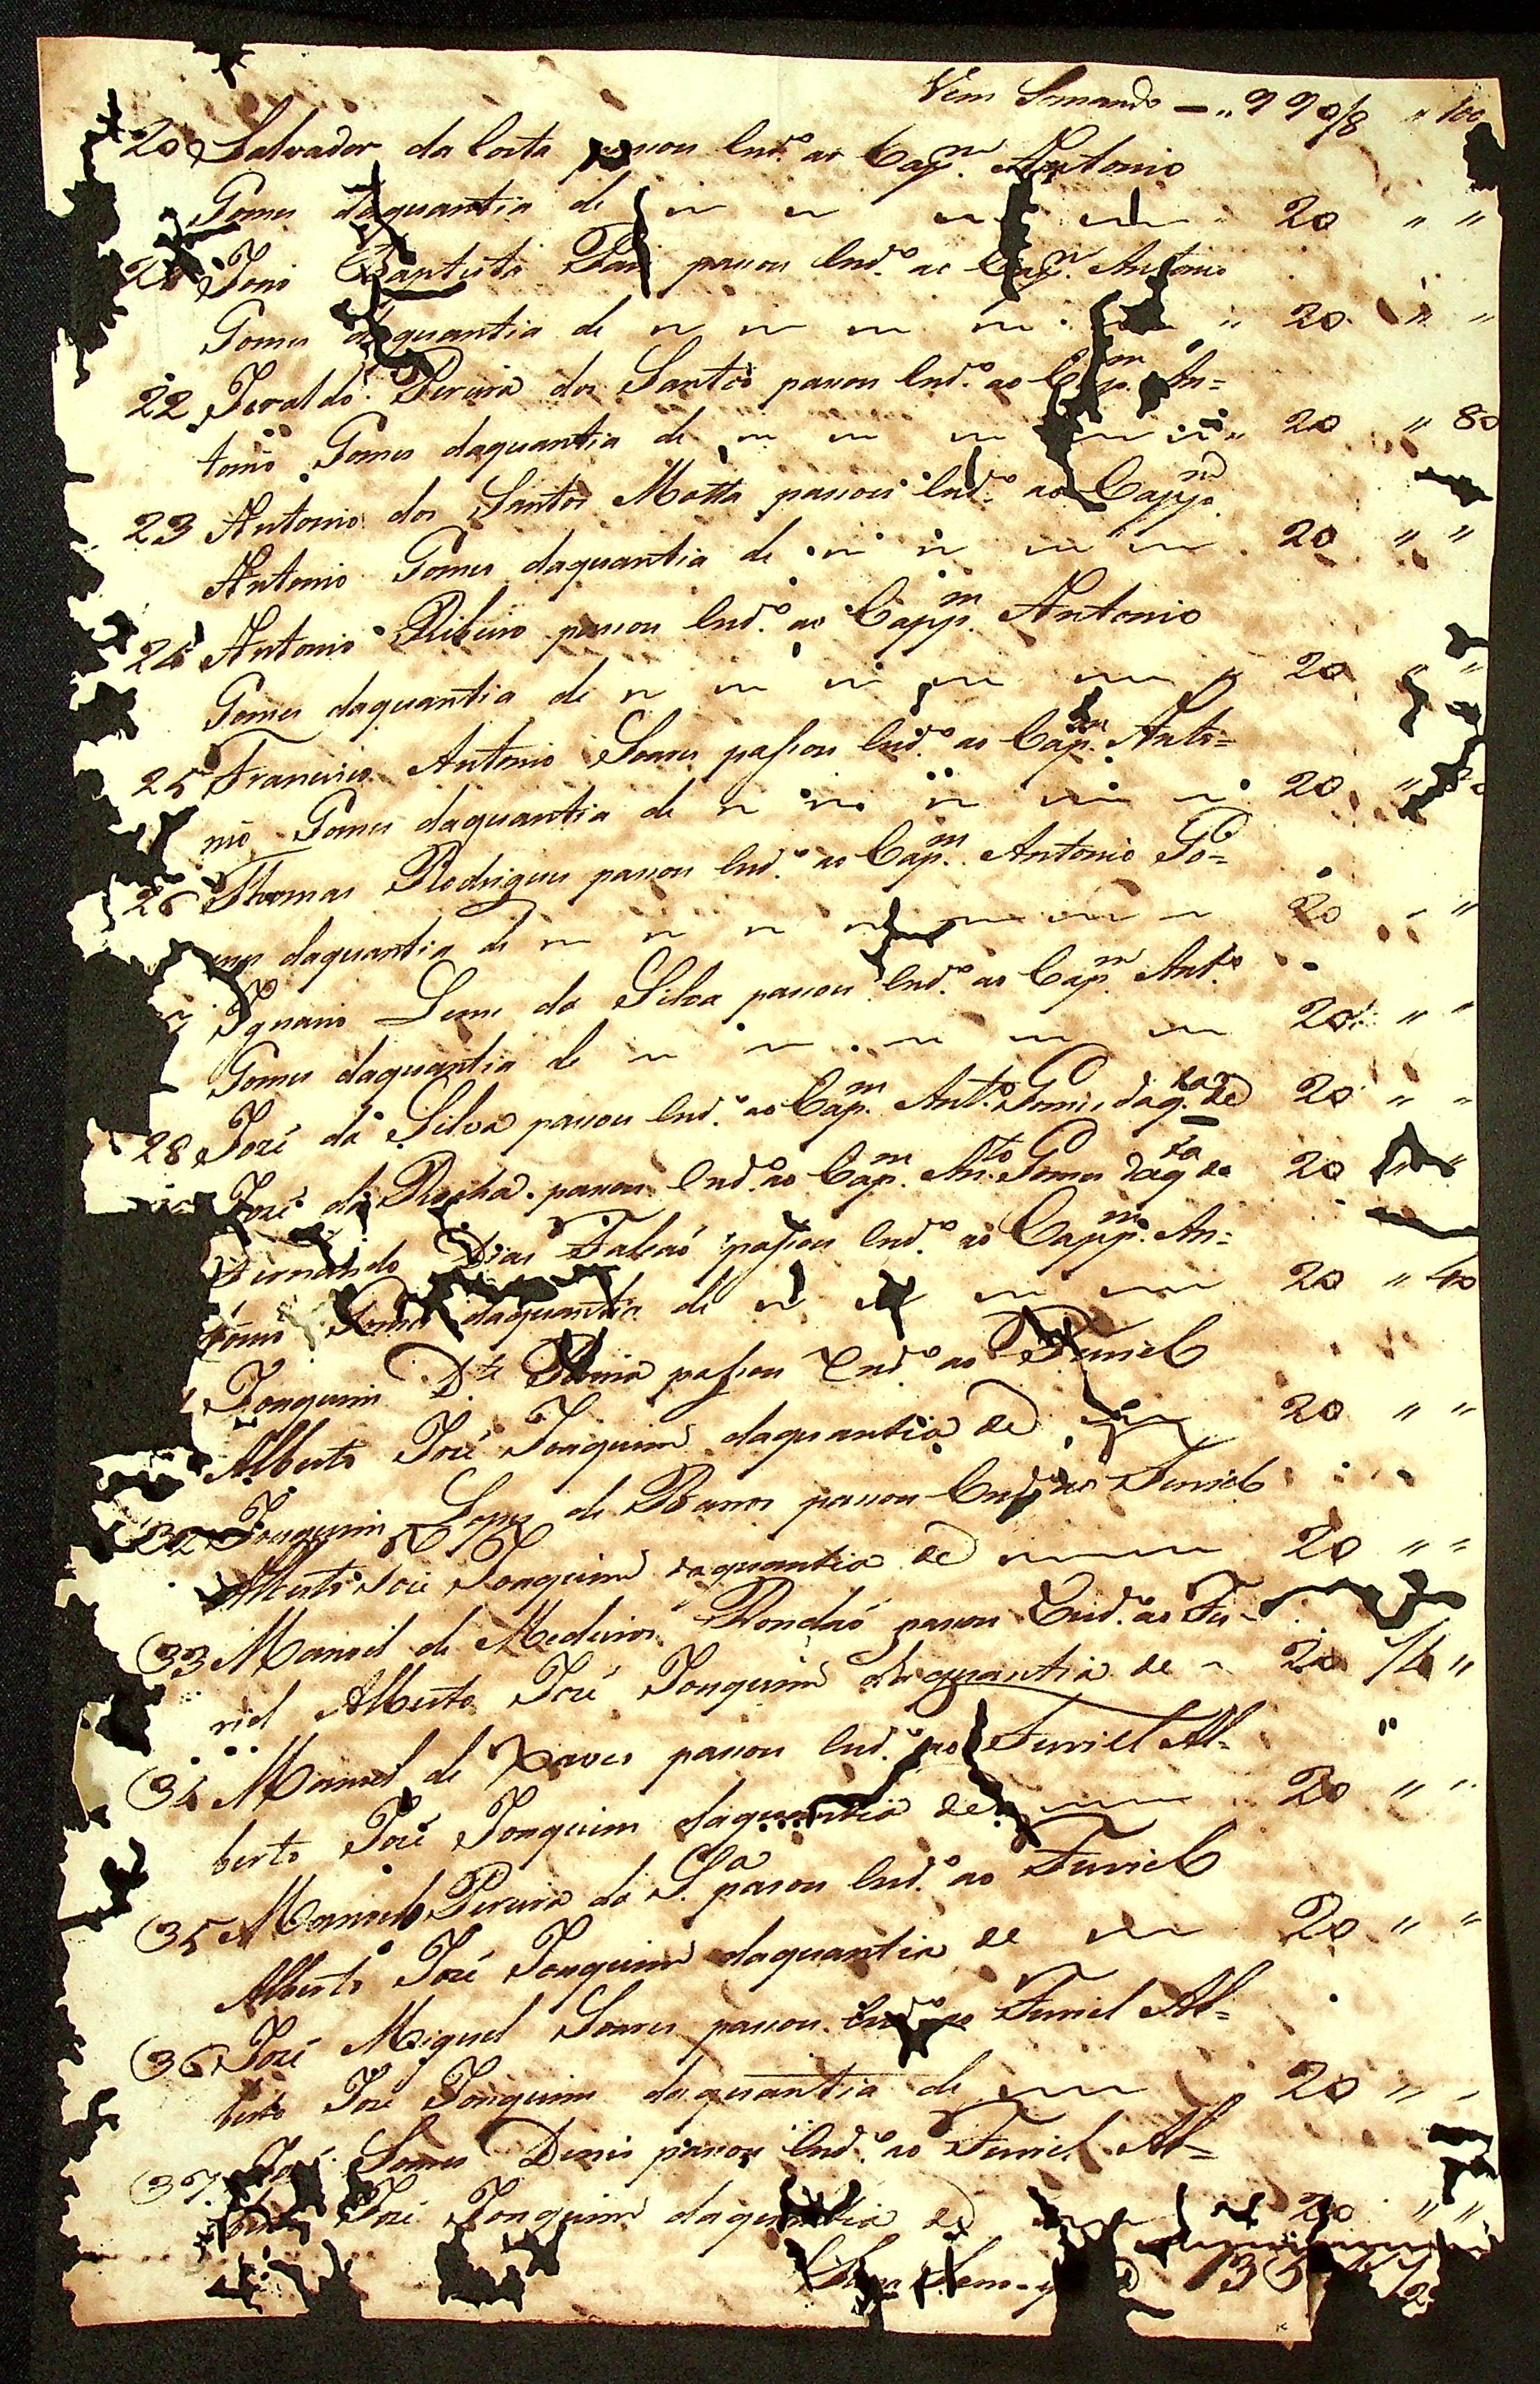 Vem Somando — " 990/8 " 100
20 Salvador da Costa passou Cred.º ao Capp.m Antonio
Gomes daquantia de 20 " "
21 João Baptista passou Cred.º ao Capp.m Antonio
Gomes daquantia de " 20 " "
22 Geraldo Pereira dos Santos passou Cred.º ao Capp.m An=
tonio Gomes daquantia de " 20 " 80
23 Antonio dos Santos Motta passou Cred.º ao Capp.m
Antonio Gomes daquantia de 20 " "
24 Antonio Ribeiro passou Cred.º ao Capp.m Antonio
Gomes daquantia de " 20 " "
25 Francisco Antonio Soares passou Cred.º ao Cap.m Anto=
nio Gomes daquantia de 20 "
26 Thomas Rodrigues passou Cred.º ao Cap.m Antonio Go=
mes daquantia de 20 " "
Ignacio Leme da Silva passou Cred.º ao Cap.m Ant.º
Gomes daquantia de 20 " "
28 José da Silva passou Cred.º ao Cap.m Ant.º Gomes daq.ta de 20 " "
José da Rocha passou Cred.º ao Cap.m An.to Gomes daq.ta de 20 " "
Fernando Dias Falcaó passou Cred.º ao Capp.m An=
tonio Gomes daquantia de 20 " 40
Joaquim D.te passou Cred.º ao Furriel
Alberto José Joaquim daquantia de 20 " "
32 Joaquim Lopes de Barros passou Cred.º ao Furriel
Alberto José Joaquim daquantia de 20 " "
33 Manoel de Medeiros Rondaó passou Cred.º ao Fu=
riel Alberto José Joaquim daquantia de 20 "
34 Manoel de Xaves passou Cred.º ao Furriel Al=
berto José Joaquim daquantia de 20 " "
35 Manoel Pereira da S.a passou Cred.º ao Furriel
Alberto José Joaquim daquantia de 20 " "
36 José Miguel Soares passou Cred.º ao Furriel Al=
berto José Joaquim daquantia de 20 " "
37 José Gomes Denis passou Cred.º ao Furriel Al=
berto José Joaquim daquantia de 20 " "